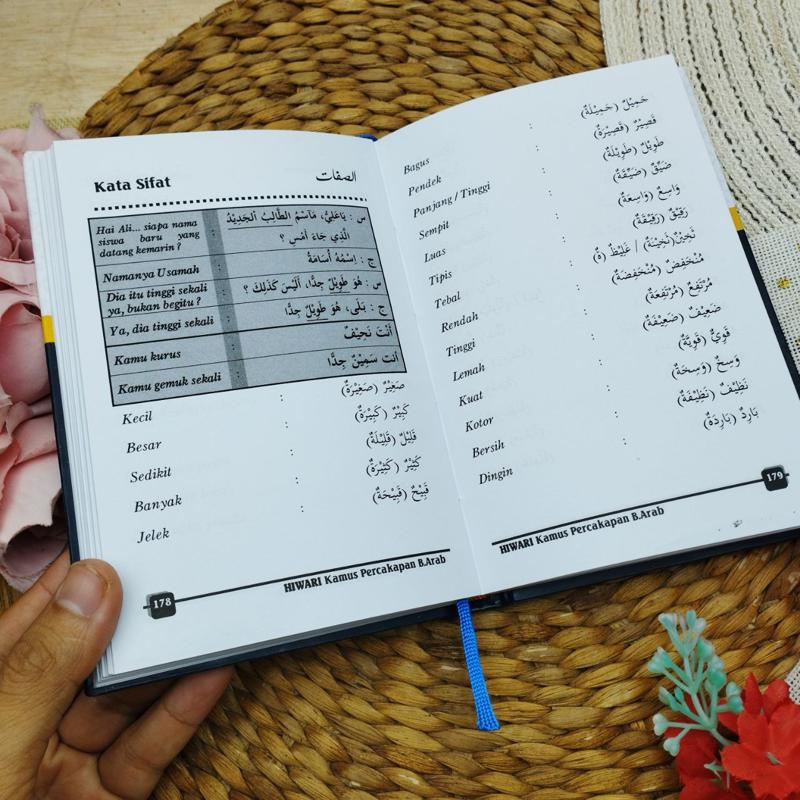 Kata Sifat الصفات
Hai Ali... siapa nama
siswa baru yang
datang kemarin ?
س : يَاعَلِيُّ، مَاسْمُ الطَّالِبُ الْجَدِيْدُ
الَّذِي جَاءَ أَمْسِ ؟
Namanya Usamah
ج : اِسْمُهُ أُسَامَةُ
Dia itu tinggi sekali
ya, bukan begitu ?
س : هُوَ طَوِيْلٌ جِدًّا، أَلَيْسَ كَذَلِكَ ؟
Ya, dia tinggi sekali
ج : بَلَى، هُوَ طَوِيْلٌ جِدًّا
Kamu kurus
أَنْتَ نَحِيْفٌ
Kamu gemuk sekali
أنت سَمِيْنٌ جِدًّا
Kecil : صَغِيْرٌ (صَغِيْرَةٌ)
Besar : كَبِيْرٌ (كَبِيْرَةٌ)
Sedikit : قَلِيْلٌ (قَلِيْلَةٌ)
Banyak : كَثِيْرٌ (كَثِيْرَةٌ)
Jelek : قَبِيْحٌ (قَبِيْحَةٌ)
178 HIWARI Kamus Percakapan B.Arab
Bagus : جَمِيْلٌ (جَمِيْلَةٌ)
Pendek : قَصِيْرٌ (قَصِيْرَةٌ)
Panjang / Tinggi : طَوِيْلٌ (طَوِيْلَةٌ)
Sempit : ضَيِّقٌ (ضَيِّقَةٌ)
Luas : وَاسِعٌ (وَاسِعَةٌ)
Tipis : رَقِيْقٌ (رَقِيْقَةٌ)
Tebal : ثَخِيْنٌ (ثَخِيْنَةٌ) / غَلِيْظٌ (ةٌ)
Rendah : مُنْخَفِضٌ (مُنْخَفِضَةٌ)
Tinggi : مُرْتَفِعٌ (مُرْتَفِعَةٌ)
Lemah : ضَعِيْفٌ (ضَعِيْفَةٌ)
Kuat : قَوِيٌّ (قَوِيَّةٌ)
Kotor : وَسِخٌ (وَسِخَةٌ)
Bersih : نَظِيْفٌ (نَظِيْفَةٌ)
Dingin : بَارِدٌ (بَارِدَةٌ)
HIWARI Kamus Percakapan B.Arab 179